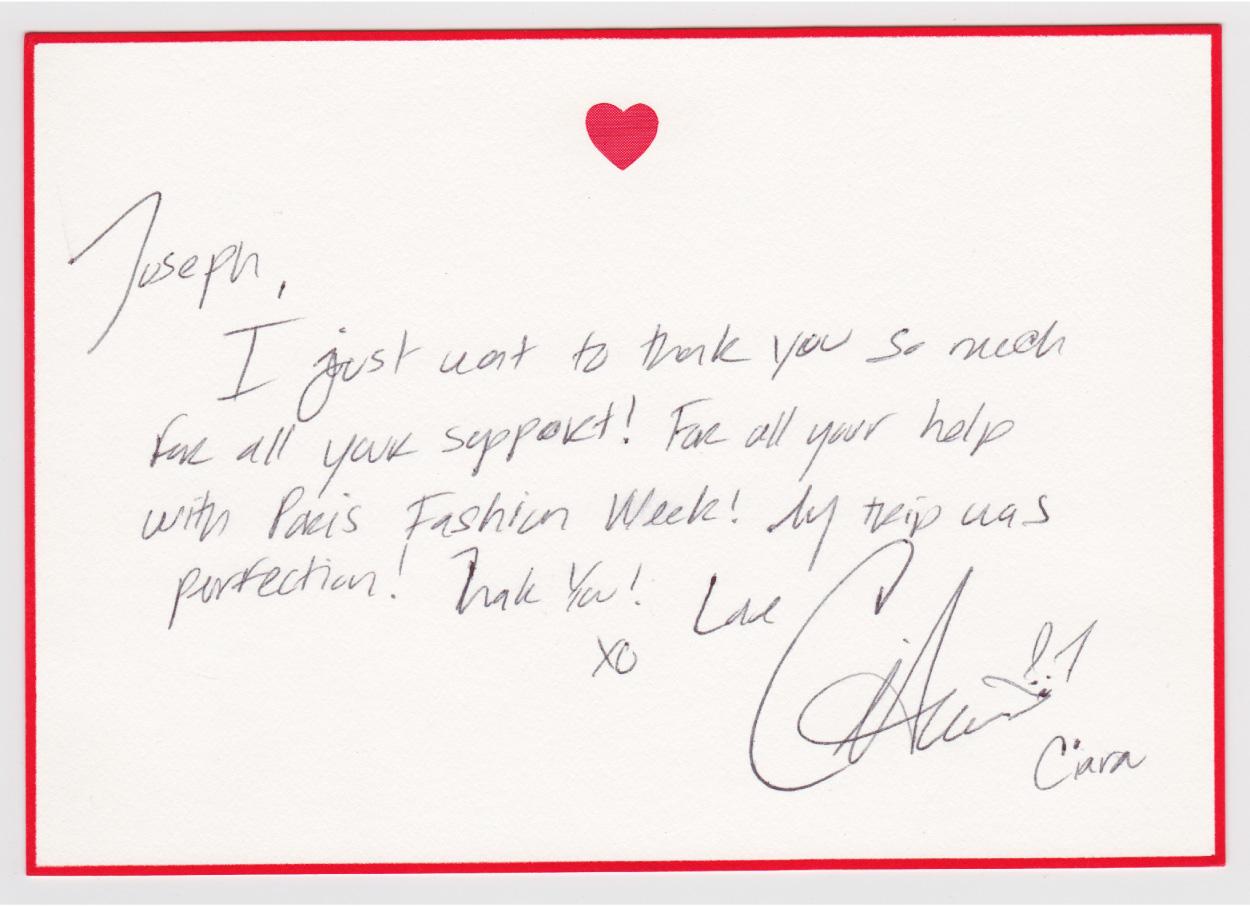 Joseph,
I just want to thank you so much
for all your support! For all your help
with Paris Fashion Week! My trip was
perfection! Thank You! Love
xo
Ciara